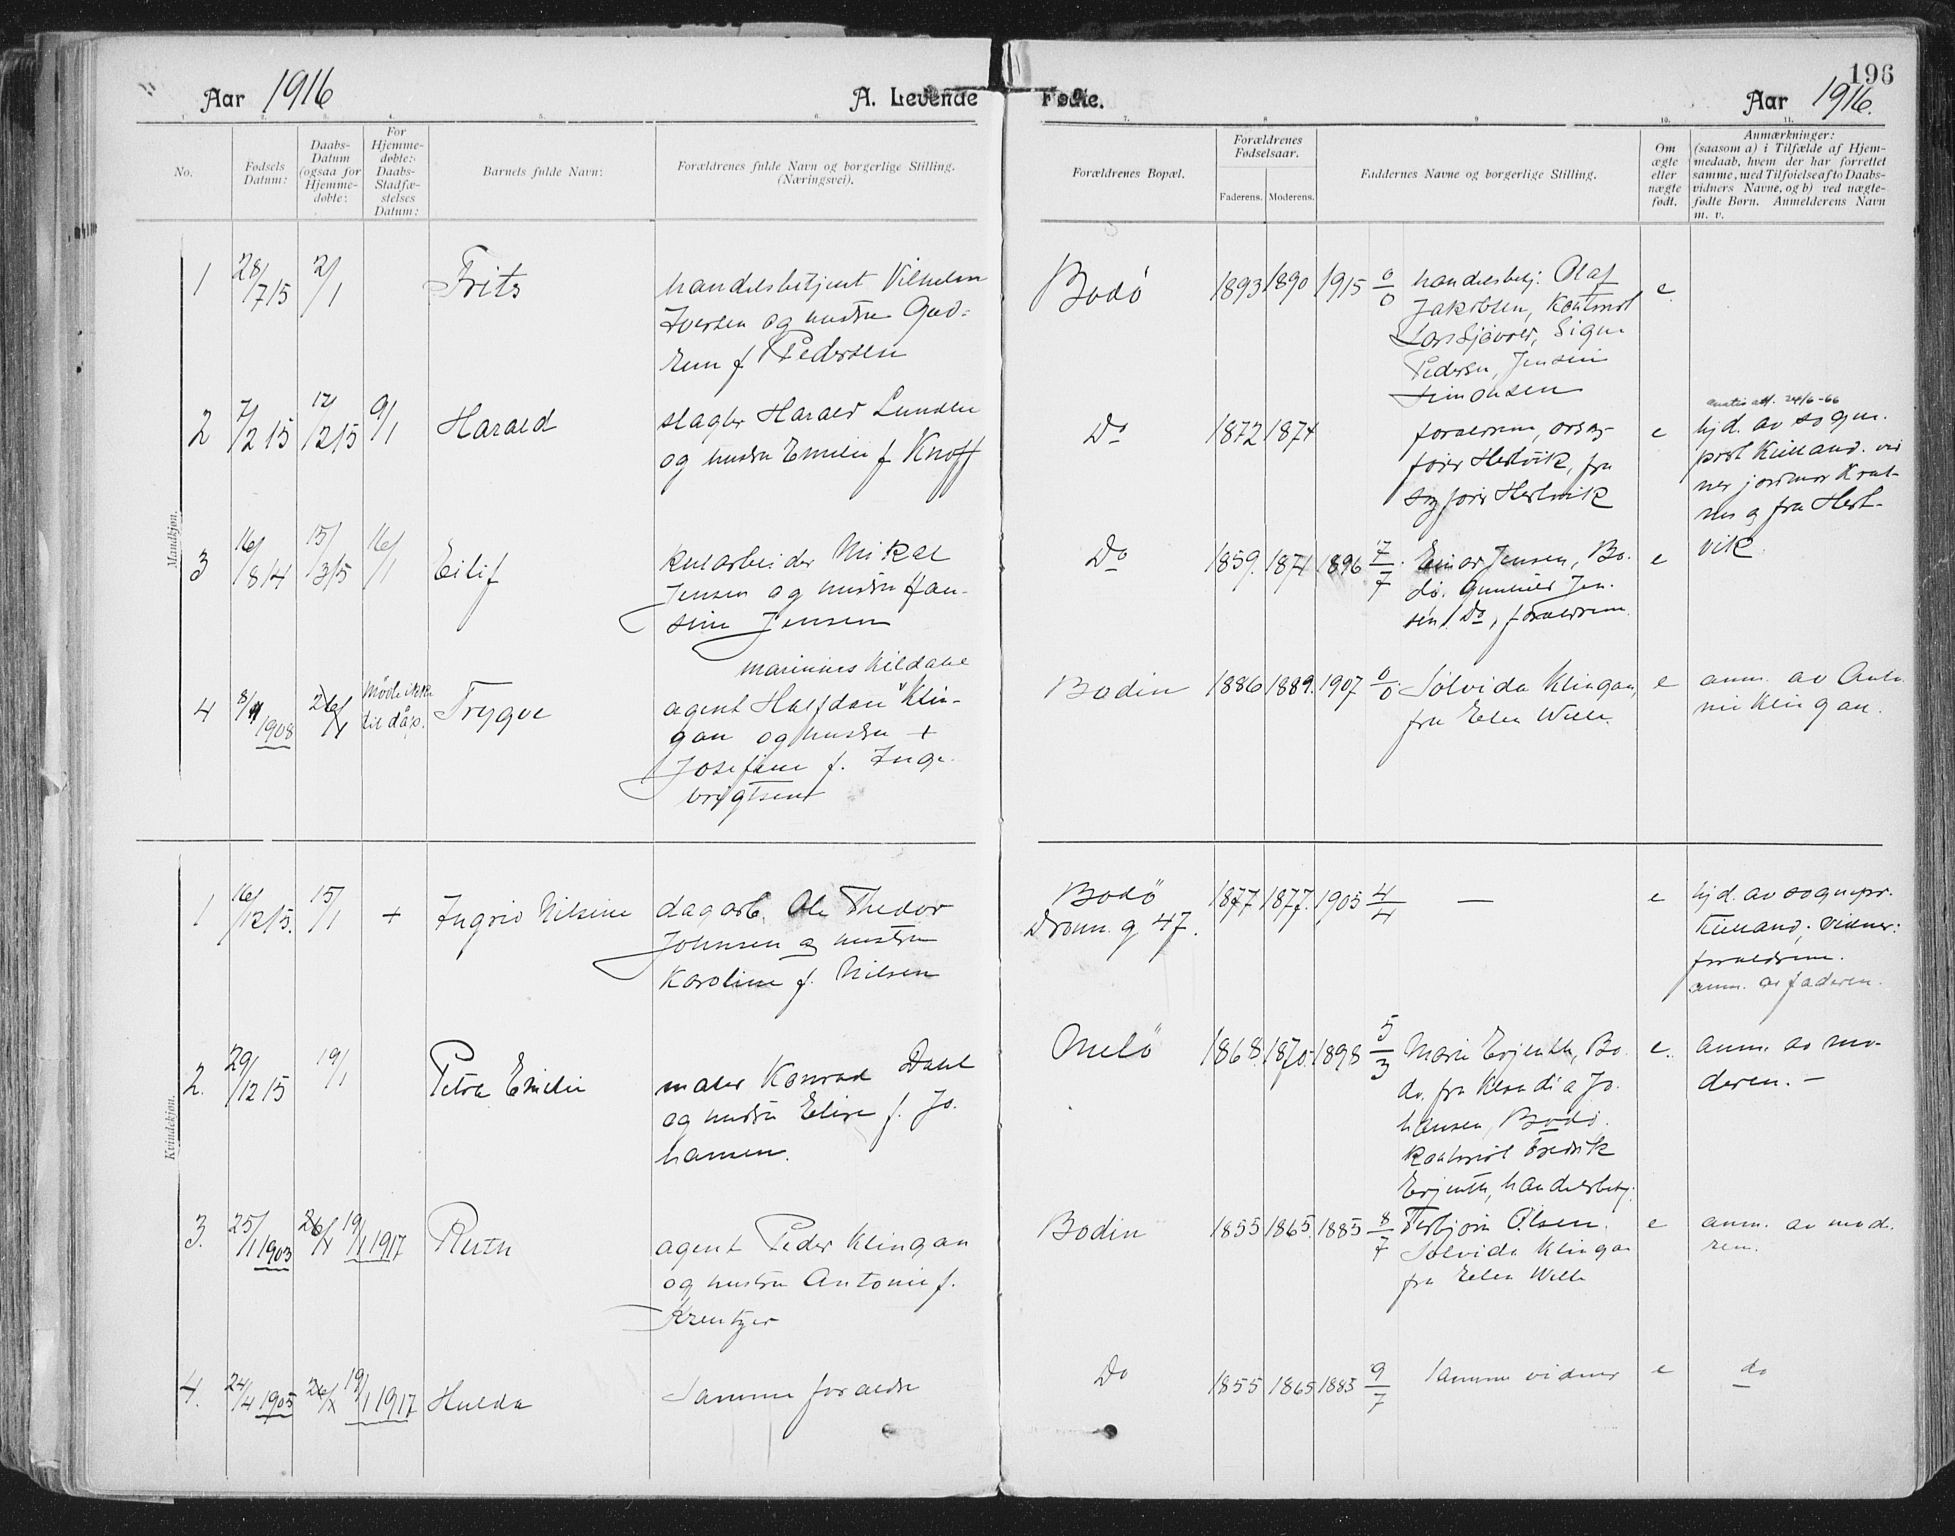 196
Aar 1916
A. Levende
Fødte.
Aar 1916.
1. 2. 3. 4. 5. 6. 7. 8. 9. 10. 11.
No.
Fødsels
Datum:
Daabs-
Datum
(ogsaa for
Hjemme-
døbte:
For
Hjemme-
døbte:
Daabs-
Stadfæ-
stelses
Datum:
Barnets fulde Navn:
Forældrenes fulde Navn og borgerlige Stilling.
(Næringsvei).
Forældrenes Bopæl.
Forældrenes
Fødselsaar.
Faderens. Moderens.
Faddernes Navne og borgerlige Stilling.
Om
ægte
eller
uægte
født.
Anmærkninger:
(saasom a) i Tilfælde af Hjem-
medaab, hvem der har forrettet
samme, med Tilføielse af to Daabs-
vidners Navne, og b) ved uægte-
fødte Børn. Anmelderens Navn
m. v.
Mandkjøn.
1 28/7 15 2/1 Frits
handelsbetjent Vilhelm
Iversen og hustru
f. Pedersen
Bodö 1893 1890 1915 0/0
handelsbetj. Olaf
Jakobsen, Kontorist
Signe
Pedersen, Jensine
Simonsen
e.
2 7/2 15 12/2 15 9/1 Harald
slagter Harald Lunden
og hustru Emilie f. Knoff
Do 1872 1874
forældrene,
fører Hertvik, fru
Hertvik
e
24/6-66
hjd. av sogne-
prst Kielland. vid
ner jordmor
og fru Hert-
vik
3 16/8 14 15/3 15 16/1 Eilif
kularbeider Mikal
Jensen og hustru Han-
sine Jensen
Do 1859. 1874 1896 7/7
Einar Jensen, Bo-
dö. Gunhild Jen-
sen Do, forældrene.
e
4 8/4 1908 26/1
Møtte ikke
til dåp.
Trygve
Marinius Kildahl
agent Halfdan Klin-
gan og hustru +
Josefine f. Inge-
brigtsen
Bodin 1886 1889. 1907 0/0
Solvida Klingan,
fru Elen Wille
e
anm. av Anto-
nie Klingan.
Kvindekjøn.
1 16/12 15. 15/1 + Ingrid Nilsine
dagarb. Ole Thedor
Johnsen og hustru
Karoline f. Nilsen
Bodö
Dronn. g 47.
1877 1877. 1905 4/4 —
e
hjd. av sognepr.
Kielland; vidner:
forældrene.
anm. av faderen.
2. 29/12 15 19/1 Petra Emilie
maler Konrad Dahl
og hustru Elise f. Jo-
hansen.
Melö 1868. 1870. 1898 5/3
Marie Erjenth, Bo-
dö. fru Klaudia Jo-
hansen, Bodö.
kontorist Fredrik
Erjenth, handelsbetj.
e.
anm. av mo-
deren. —
3. 25/1 1903 26/1 19/1 1917 Ruth
agent Peder Klingan
og hustru Antonie f.
Kreutzer
Bodin 1855 1865. 1885 8/7
Torbjörn Olsen.
Solvida Klingan
fru Elen Wille
e
anm. av mode-
ren.
4. 24/4 1905 26/1 19/1 1917 Hulda
Samme forældre
Do 1855 1865 1885 9/7
Samme vidner
e
do